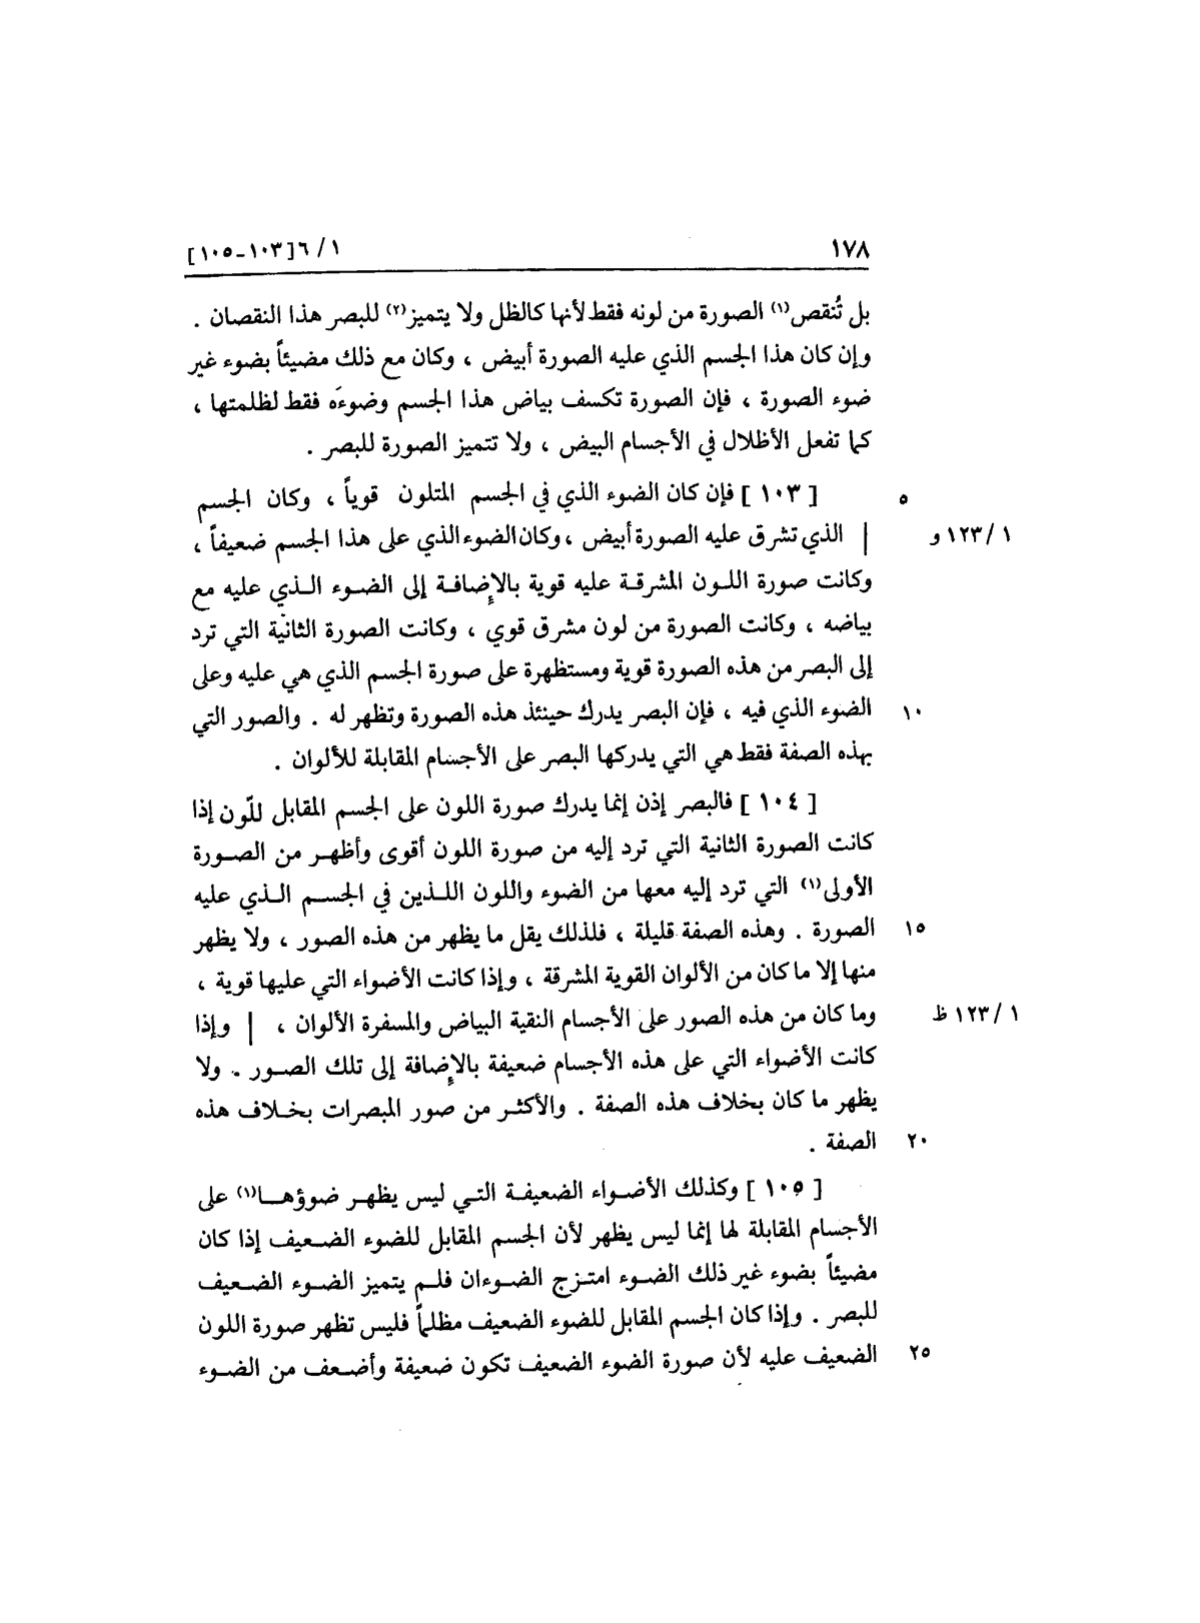 ١٧٨ ١ / ٦[١٠٣-١٠٥]
بل تُنقص(١) الصورة من لونه فقط لأنها كالظل ولا يتميز(٢) للبصر هذا النقصان .
وإن كان هذا الجسم الذي عليه الصورة أبيض ، وكان مع ذلك مضيئاً بضوء غير
ضوء الصورة ، فإن الصورة تكسف بياض هذا الجسم وضوءَه فقط لظلمتها ،
كما تفعل الأظلال في الأجسام البيض ، ولا تتميز الصورة للبصر .
٥ [ ١٠٣ ] فإن كان الضوء الذي في الجسم المتلون قوياً ، وكان الجسم
١ / ١٢٣ و | الذي تشرق عليه الصورة أبيض ، وكان الضوء الذي على هذا الجسم ضعيفاً ،
وكانت صورة اللون المشرقة عليه قوية بالإضافة إلى الضوء الذي عليه مع
بياضه ، وكانت الصورة من لون مشرق قوي ، وكانت الصورة الثانية التي ترد
إلى البصر من هذه الصورة قوية ومستظهرة على صورة الجسم الذي هي عليه وعلى
١٠ الضوء الذي فيه ، فإن البصر يدرك حينئذ هذه الصورة وتظهر له . والصور التي
بهذه الصفة فقط هي التي يدركها البصر على الأجسام المقابلة للألوان .
[ ١٠٤ ] فالبصر إذن إنما يدرك صورة اللون على الجسم المقابل للّون إذا
كانت الصورة الثانية التي ترد إليه من صورة اللون أقوى وأظهر من الصورة
الأولى(١) التي ترد إليه معها من الضوء واللون اللذين في الجسم الذي عليه
١٥ الصورة . وهذه الصفة قليلة ، فلذلك يقل ما يظهر من هذه الصور ، ولا يظهر
منها إلا ما كان من الألوان القوية المشرقة ، وإذا كانت الأضواء التي عليها قوية ،
١ / ١٢٣ ظ وما كان من هذه الصور على الأجسام النقية البياض والمسفرة الألوان ، | وإذا
كانت الأضواء التي على هذه الأجسام ضعيفة بالإضافة إلى تلك الصور . ولا
يظهر ما كان بخلاف هذه الصفة . والأكثر من صور المبصرات بخلاف هذه
٢٠ الصفة .
[ ١٠٥ ] وكذلك الأضواء الضعيفة التي ليس يظهر ضوؤها(١) على
الأجسام المقابلة لها إنما ليس يظهر لأن الجسم المقابل للضوء الضعيف إذا كان
مضيئاً بضوء غير ذلك الضوء امتزج الضوءان فلم يتميز الضوء الضعيف
للبصر . وإذا كان الجسم المقابل للضوء الضعيف مظلماً فليس تظهر صورة اللون
٢٥ الضعيف عليه لأن صورة الضوء الضعيف تكون ضعيفة وأضعف من الضوء